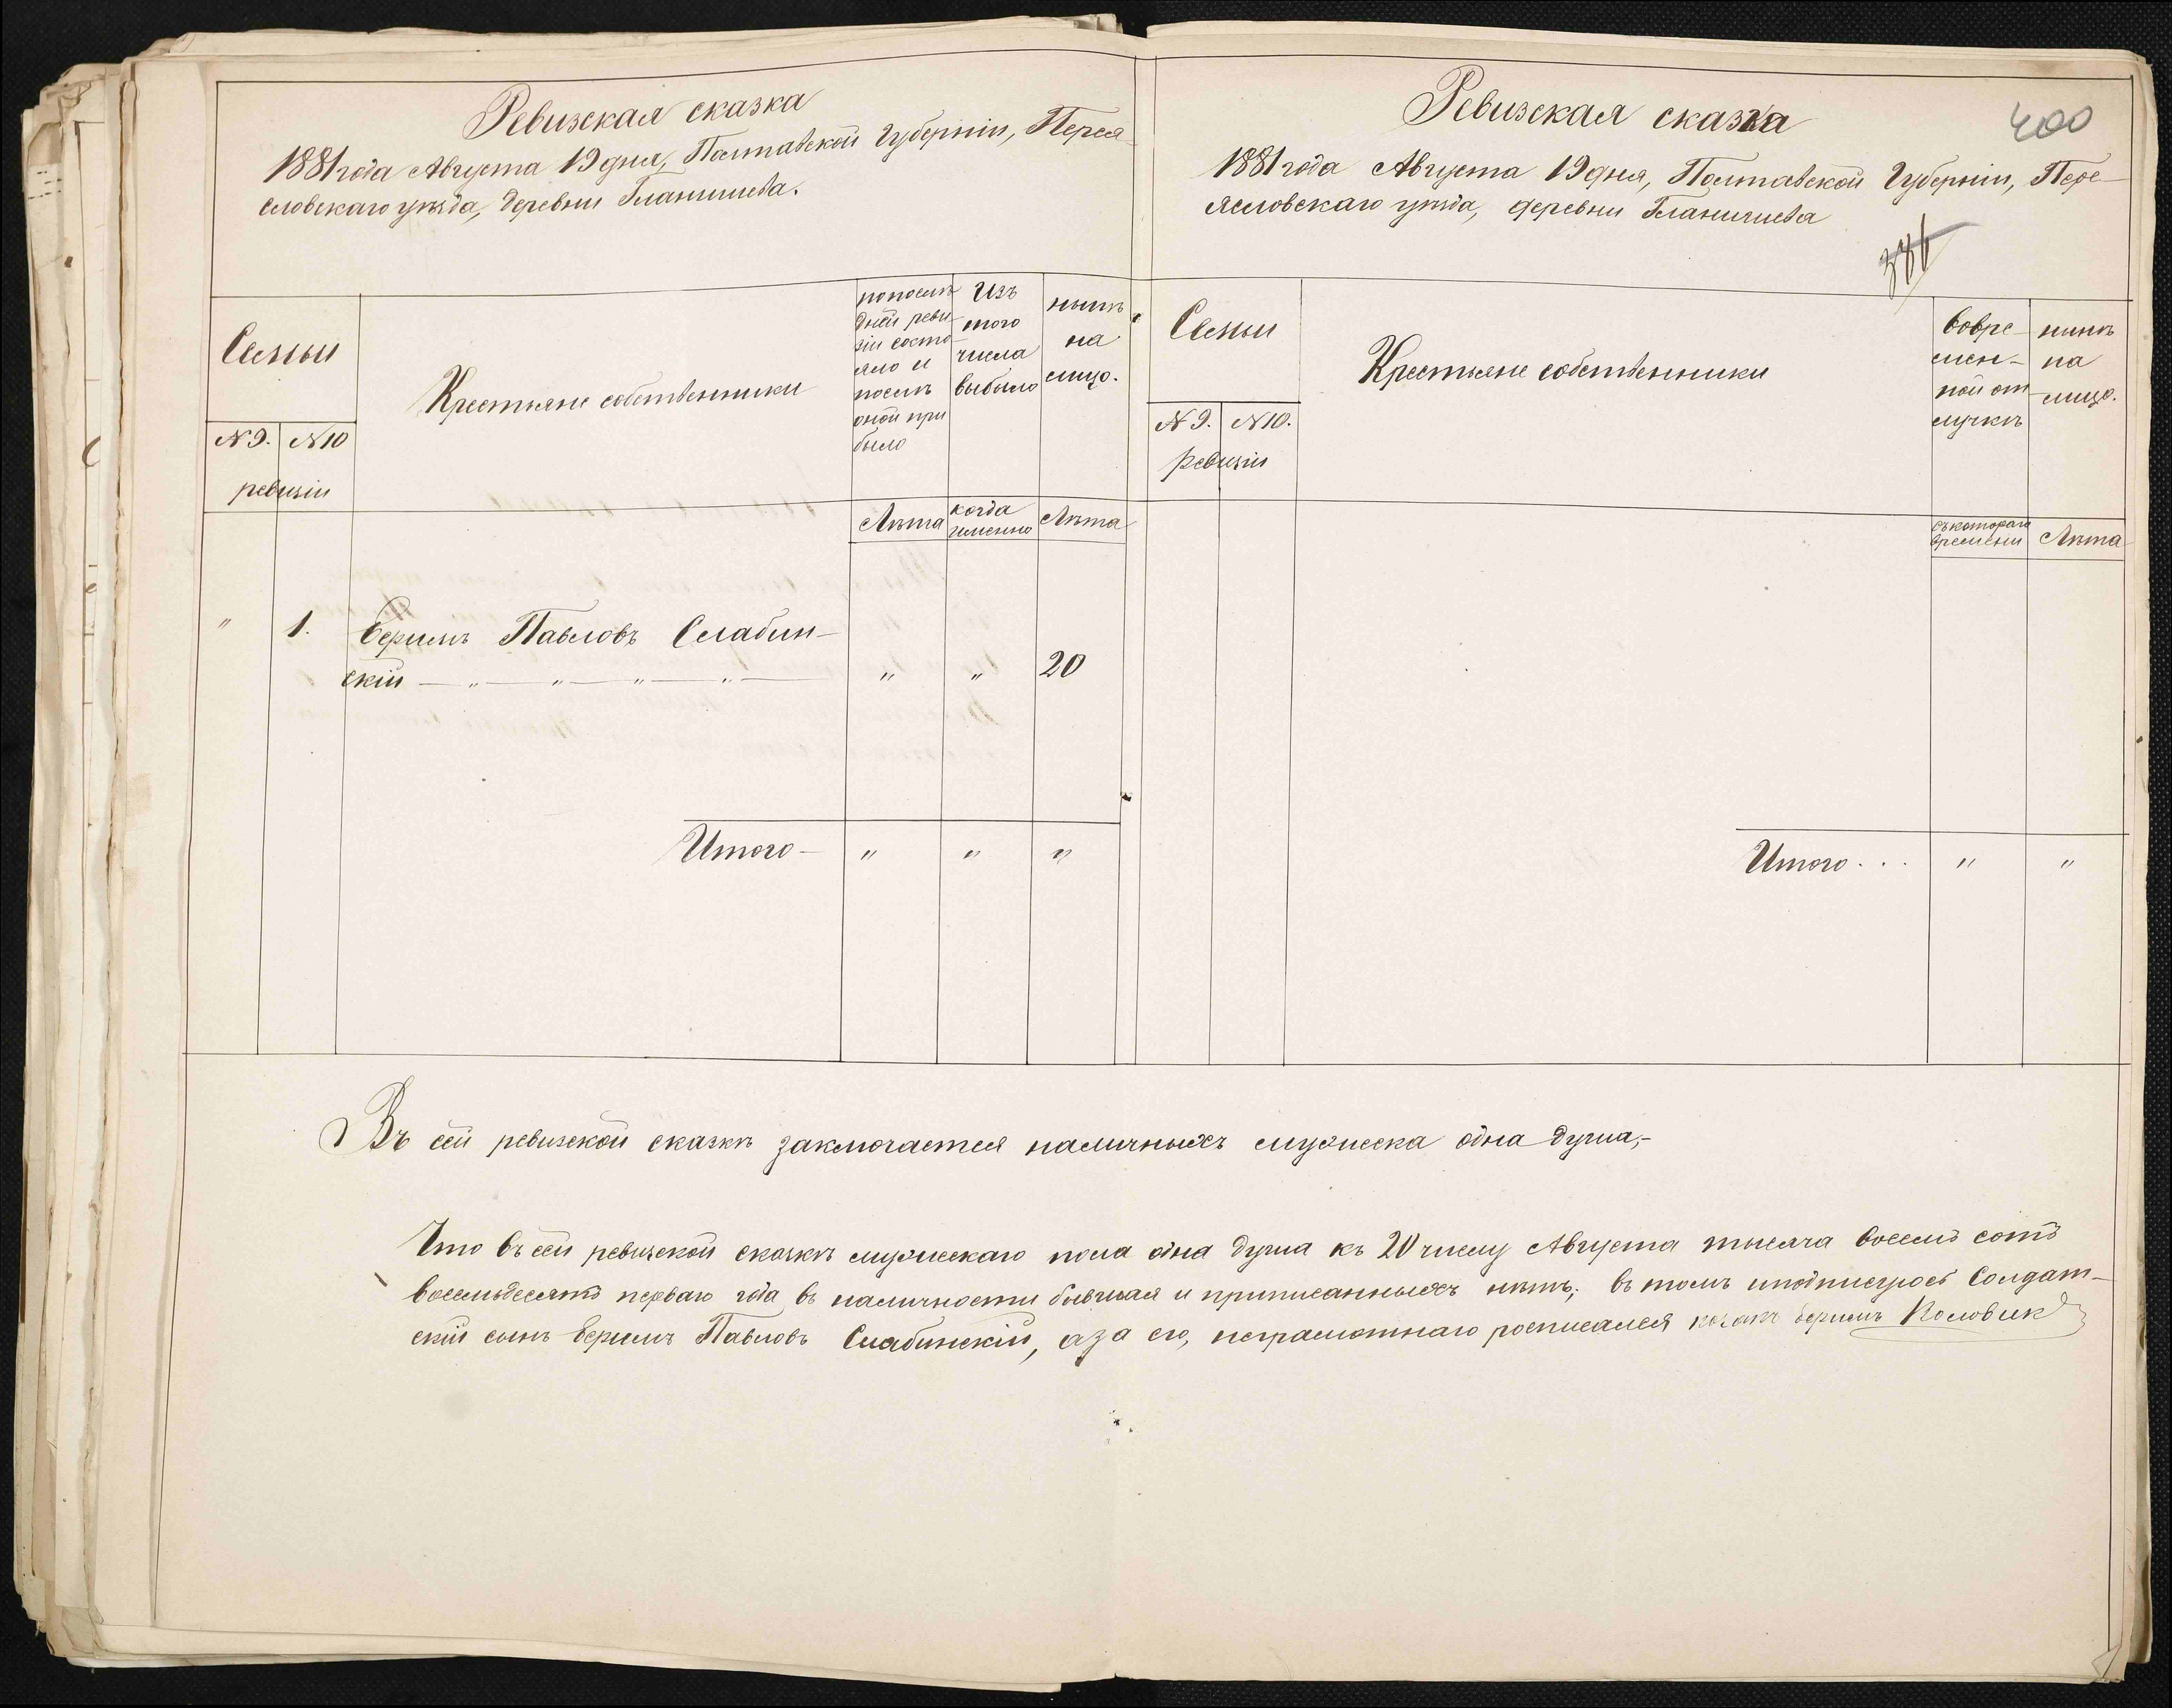 Ревизская сказка
1881 года Августа 19 дня, Полтавской Губерніи, Перея-
словскаго уѣзда, деревни Гланишева.
Семьи
№ 9. № 10
ревизіи
Крестьяне собственники
по послѣ
дней реви
зіи состо
яло и
послѣ
оной при
было
Изъ
того
числа
выбыло
нынѣ
на
лицо.
Лѣта
когда
именно
Лѣта
" 1. Ефимъ Павловъ Слабин-
скій — " — " — " — " — " " 20
Итого — " " "
Ревизская сказка
400
1881 года Августа 19 дня, Полтавской Губерніи, Пере-
яславскаго уѣзда, деревни Гланишева
386
Семьи
№ 9. № 10.
ревизіи
Крестьяне собственники
вовре-
мен-
ной от
лучкѣ
нинѣ
на
лицо.
съ котораго
времени
Лѣта
Итого . . . " "
Въ сей ревизской сказкѣ заключается наличныхъ мужеска одна душа,-
Что въ сей ревизской сказкѣ мужескаго пола одна душа къ 20 числу Августа тысяча восемь сотъ
восемьдесятъ перваго года въ наличности бывшая и приписанныхъ нѣтъ; въ томъ и подпис Солдат-
скій сынъ Ефимъ Павловъ Слабинскій, а за его, неграмотнаго росписался козакъ Ефимъ Коловик